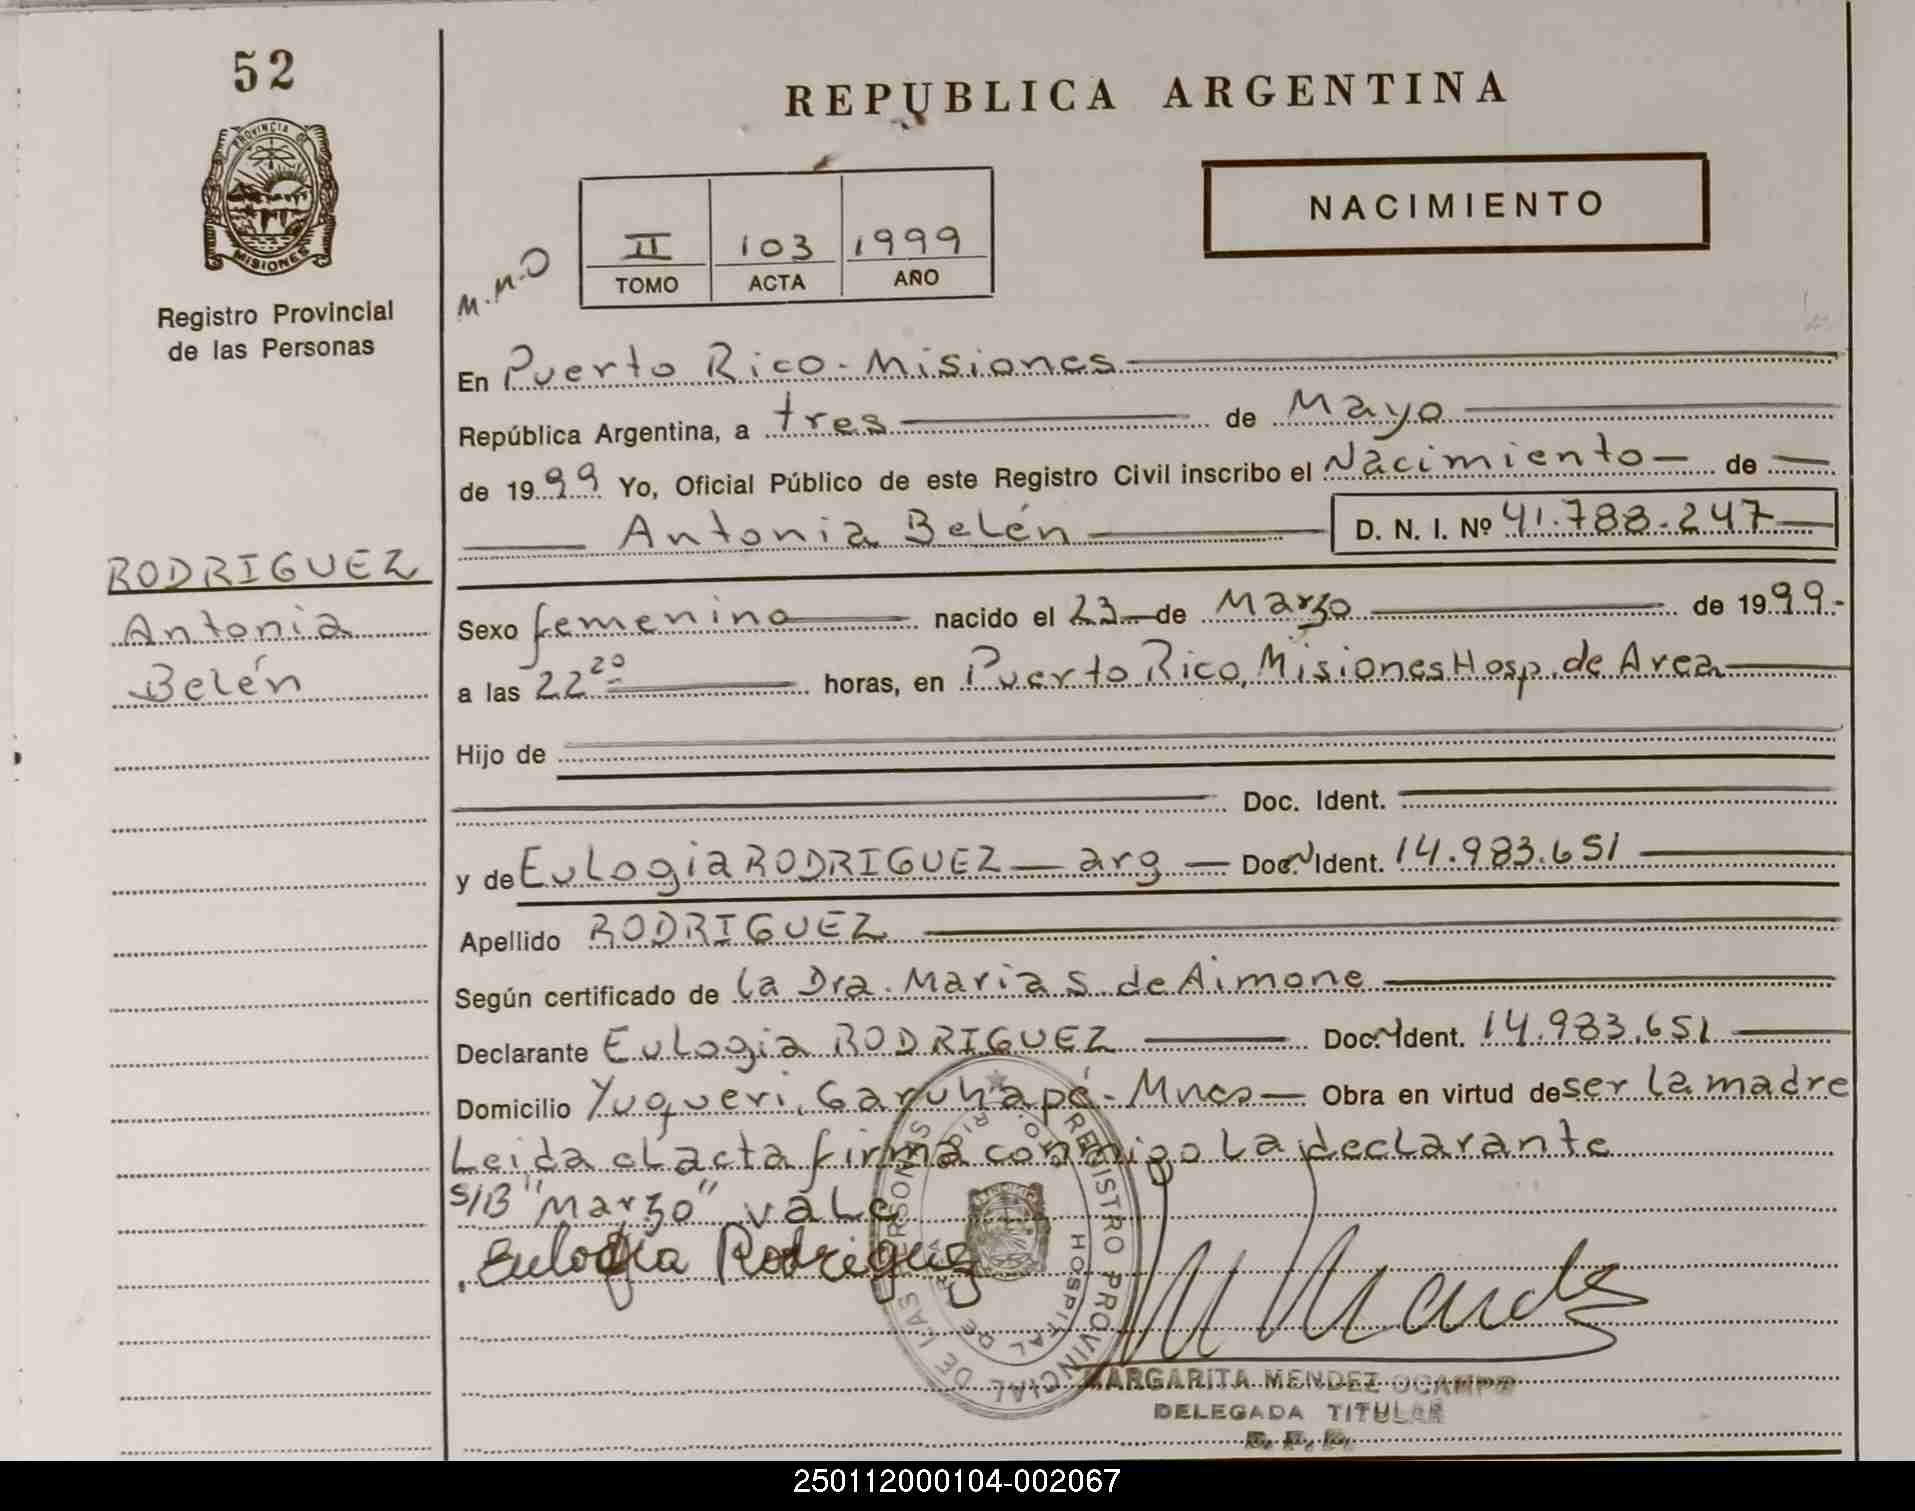 52
REPUBLICA ARGENTINA
PROVINCIA DE
MISIONES
Registro Provincial
de las Personas
NACIMIENTO
M.M.O
II 103 1999
TOMO ACTA AÑO
En Puerto Rico - Misiones
República Argentina, a tres de Mayo
de 1999 Yo, Oficial Público de este Registro Civil inscribo el Nacimiento de
Antonia Belén D. N. I. Nº 41.788.247
RODRIGUEZ
Antonia
Belén
Sexo femenino nacido el 23 de Marzo de 1999.-
a las 22 20 horas, en Puerto Rico, Misiones Hosp. de Area
Hijo de
Doc. Ident.
y de Eulogia RODRIGUEZ arg Doc. Ident. 14.983.651
Apellido RODRIGUEZ
Según certificado de la Dra. Maria S. de Aimone
Declarante Eulogia RODRIGUEZ Doc. Ident. 14.983.651
Domicilio Yuqueri, Garuhapé - Mnes Obra en virtud de ser la madre
Leida el acta firma conmigo la declarante
S/B "Marzo" vale
Eulogia Rodriguez
REGISTRO PROVINCIAL DE LAS PERSONAS
HOSPITAL DE
MARGARITA MENDEZ OCAMPO
DELEGADA TITULAR
250112000104-002067